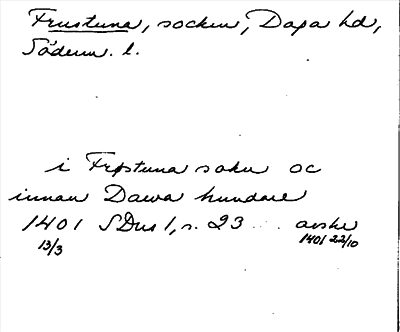 Frustuna, socken, Daga hd,
Söderm. l.
i Frøstuna sokn oc
innan Dawa hundare
1401 SDns 1, s. 23 ... avskr
13/3 1401 22/10